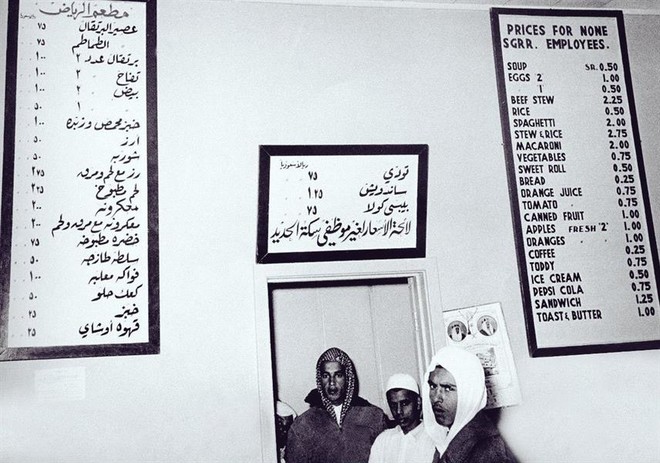 مطعم الرياض
عصير البرتقال ٧٥
" الطماطم ٧٥
برتقال عدد ٢ ١٠٠
تفاح " ٢ ١٠٠
بيض " ٢ ١٠٠
" " ١ ٥٠
خبز محمص وزبدة ١٠٠
ارز ٥٠
شوربه ٥٠
رز مع لحم ومرق ٢٧٥
لحم مطبوخ ٢٢٥
معكرونه ٢٠٠
معكرونه مع مرق ولحم ٢٠٠
خضره مطبوخه ٧٥
سلطه طازجه ٥٠
فواكه معلبه ١٠٠
كعك حلو ٥٠
خبز ٢٥
قهوه اوشاي ٢٥
تودي ٧٥
ساندويتش ١٢٥
بيبسي كولا ٧٥
لائحة الاسعار لغير موظفي سكة الحديد
PRICES FOR NONE
SGRR. EMPLOYEES.
SOUP SR. 0.50
EGGS '2' 1.00
" '1' 0.50
BEEF STEW 2.25
RICE 0.50
SPAGHETTI 2.00
STEW & RICE 2.75
MACARONI 2.00
VEGETABLES 0.75
SWEET ROLL 0.50
BREAD 0.25
ORANGE JUICE 0.75
TOMATO " 0.75
CANNED FRUIT 1.00
APPLES FRESH "2" 1.00
ORANGES " " 1.00
COFFEE 0.25
TODDY 0.75
ICE CREAM 0.50
PEPSI COLA 0.75
SANDWICH 1.25
TOAST & BUTTER 1.00